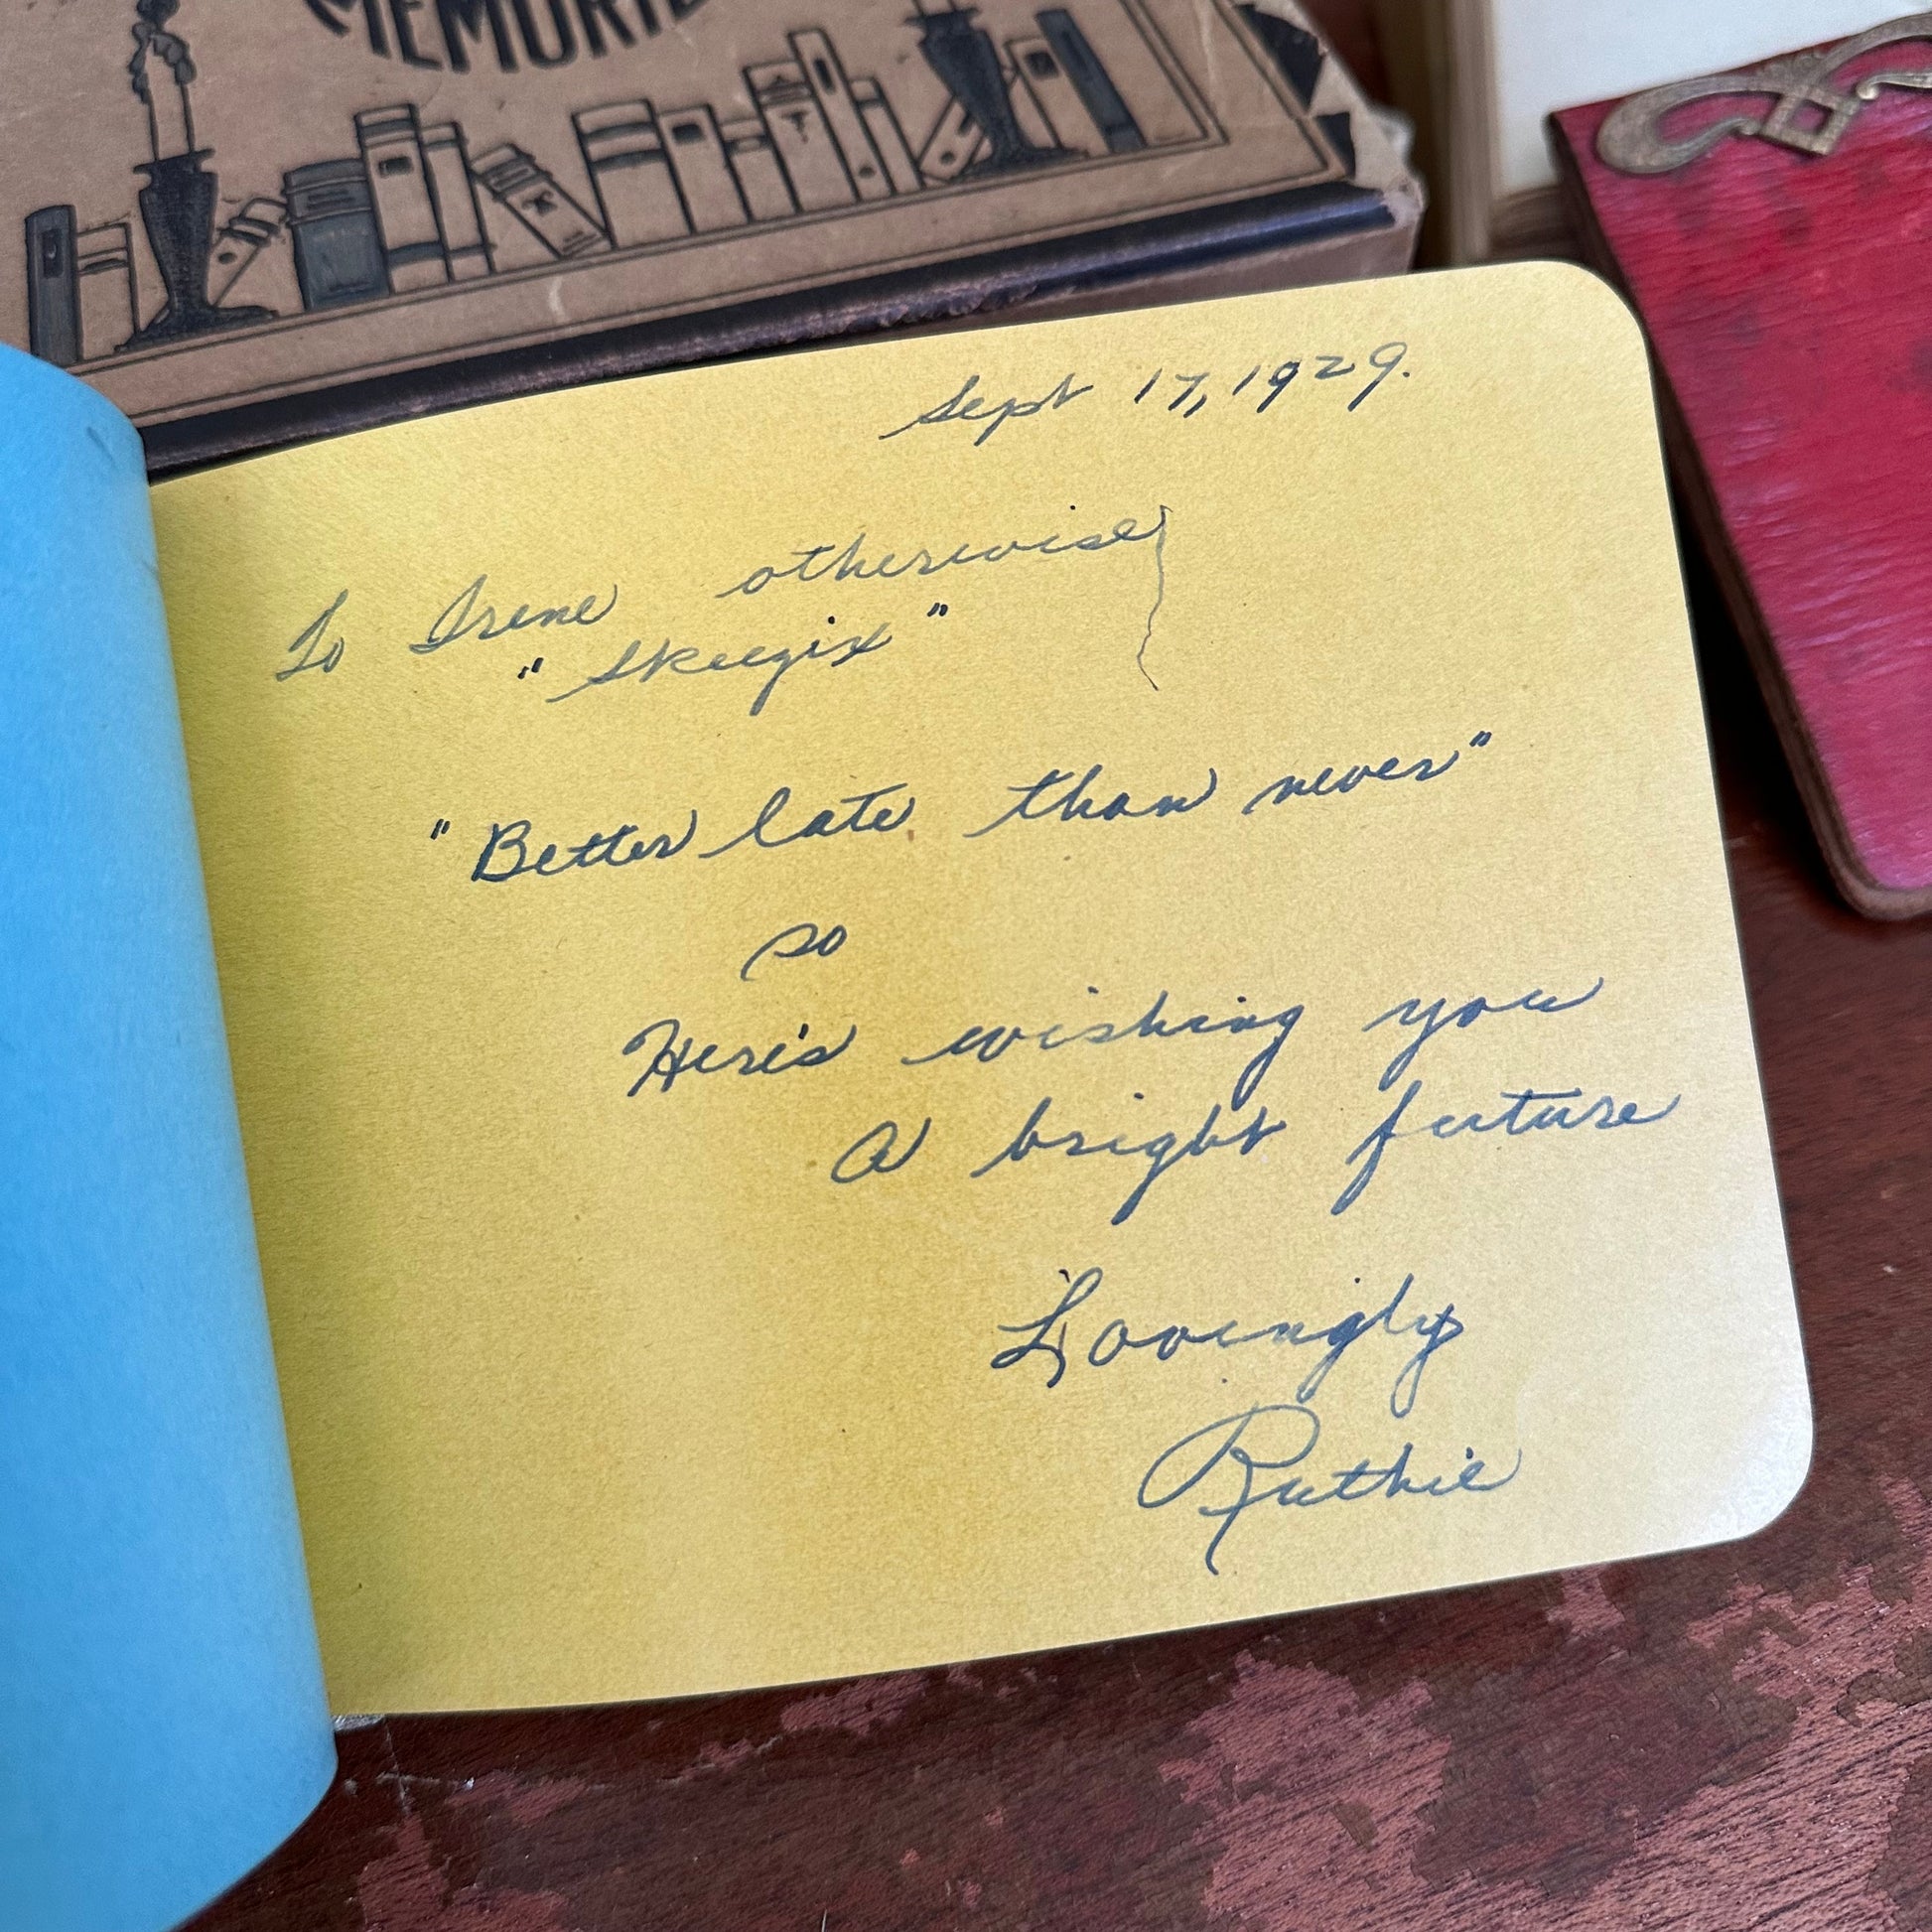 MEMORIE
Sept 17, 1929.
To Irene otherwise
"Skeegix"
"Better late than never"
so
Here's wishing you
A bright future
Lovingly
Ruthie